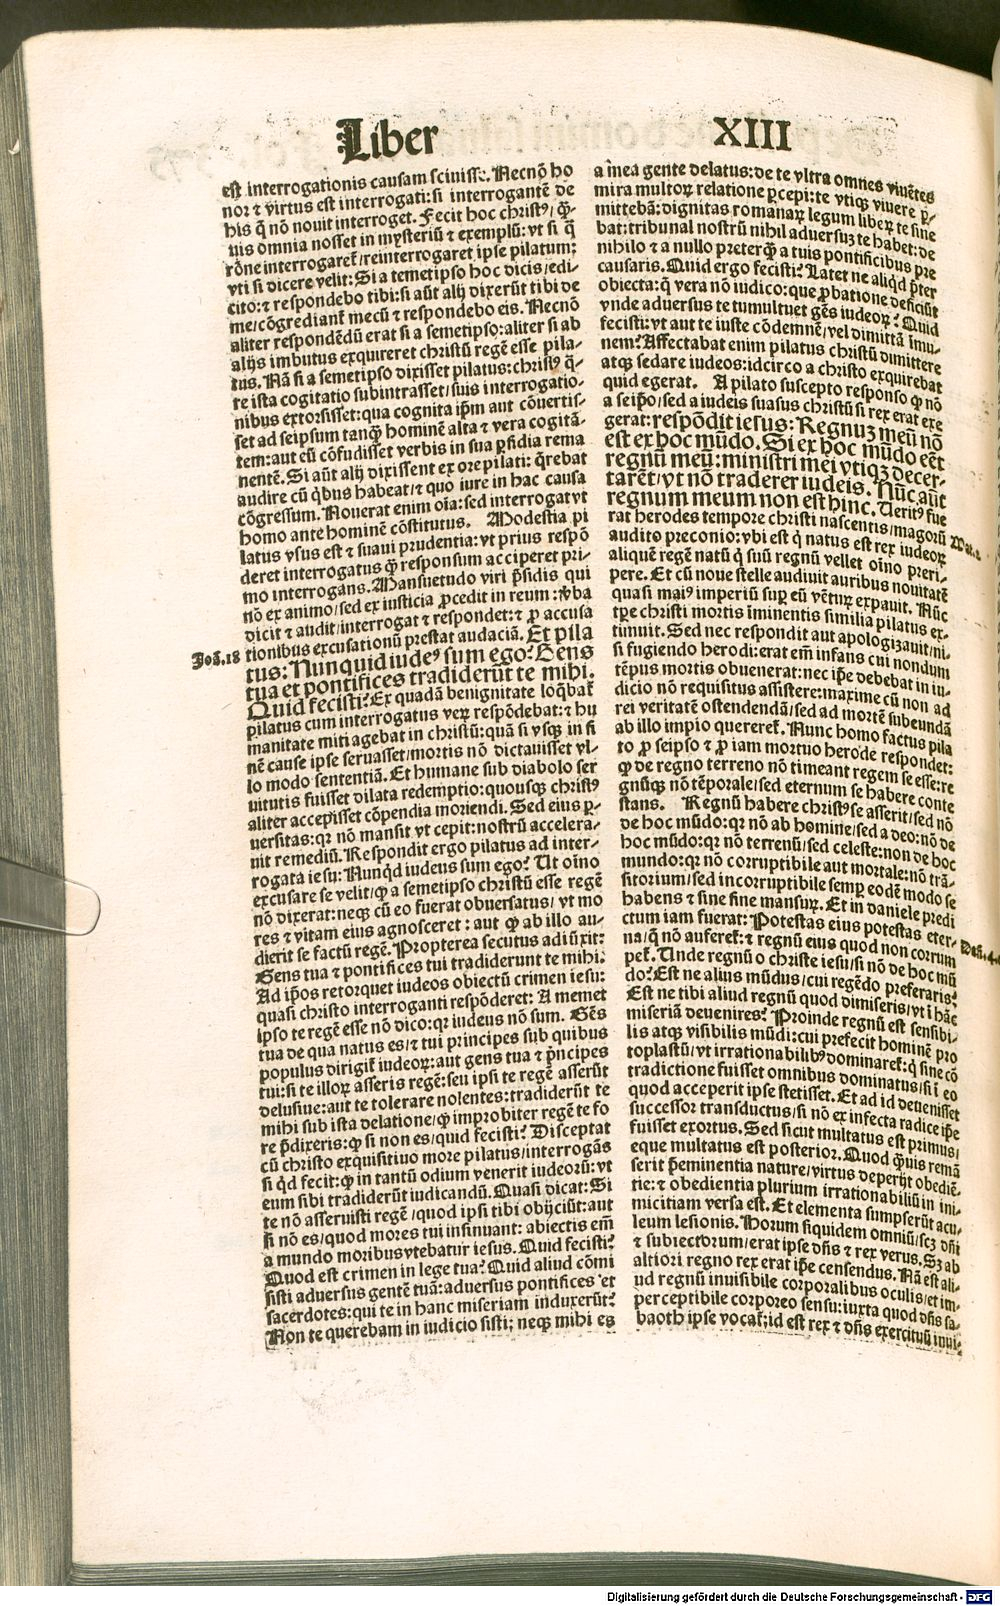 Liber XIII
est interrogationis causam scivisse. Necnō ho
nor ⁊ virtus est interrogati: si interrogantē de
his q̄ nō novit interroget. Fecit hoc christꝰ/ q̄ꝫ-
uis omnia nosset in mysteriū ⁊ exemplū: vt si q̄
rōne interrogaret̄/ reinterrogaret ipse pilatum:
vti si dicere velit: Si a temetipso hoc dicis/ edi-
cito: ⁊ respondebo tibi: si aūt alij dixerūt tibi de
me/ cōgrediant̄ mecū ⁊ respondebo eis. Necnō
aliter respondēdū erat si a semetipso: aliter si ab
alijs imbutus exquireret christū regē esse pila-
tus. Nā si a semetipso dixisset pilatus: christꝰ q̄-
te ista cogitatio subintrasset/ suis interrogatio-
nibus extorsisset: qua cognita ip̄m aut cōuertis-
set ad seipsum tanqꝫ hominē alta ⁊ vera cogitā-
tem: aut eū cōfudisset verbis in sua ꝑfidia rema
nentē. Si aūt alij dixissent ex ore pilati: q̄rebat
audire cū q̄bus habeat/ ⁊ quo iure in hac causa
cōgressum. Nouerat enim oīa: sed interrogat vt
homo ante hominē cōstitutus. Modestia pi
latus vsus est ⁊ suaui prudentia: vt prius respō
deret interrogatus qꝫ responsum acciperet pri-
mo interrogans. Mansuetudo viri p̄sidis qui
nō ex animo/ sed ex iusticia ꝓcedit in reum: v̄ba
dicit ⁊ audit/ interrogat ⁊ respondet: ⁊ ꝓ accusa
tionibus excusationū prestat audaciā. Et pila
Joā. 18
tus: Nunquid iudeꝰ sum ego? Gens
tua et pontifices tradiderūt te mihi.
Quid fecisti? Ex quadā benignitate loq̄bat̄
pilatus cum interrogatus veꝝ respōdebat: ⁊ hu
manitate miti agebat in christū: quā si vsqꝫ in fi
nē cause ipse seruasset/ mortis nō dictauisset vl-
lo modo sententiā. Et humane sub diabolo ser
uitutis fuisset dilata redemptio: quousqꝫ christꝰ
aliter accepisset cōpendia moriendi. Sed eius ꝑ-
uersitas: qꝛ nō mansit vt cepit: nostrū accelera-
uit remediū. Respondit ergo pilatus ad inter-
rogata iesu: Nunq̄d iudeus sum ego? Ut oīno
excusare se velit/ qꝙ a semetipso christū esse regē
nō dixerat: neqꝫ cū eo fuerat obuersatus/ vt mo
res ⁊ vitam eius agnosceret: aut qꝙ ab illo au-
dierit se factū regē. Propterea secutus adiūxit:
Gens tua ⁊ pontifices tui tradiderunt te mihi.
Ad ip̄os retorquet iudeos obiectū crimen iesu:
quasi christo interroganti respōderet: A memet
ipso te regē esse nō dico: qꝛ iudeus nō sum. Gēs
tua de qua natus es/ ⁊ tui principes sub quibus
populus dirigit̄ iudeoꝝ: aut gens tua ⁊ p̄ncipes
tui: si te illoꝝ asseris regē: seu ipsi te regē asserūt
delusiue: aut te tolerare nolentes: tradiderūt te
mihi sub ista delatione/ qꝙ improbiter regē te fo
re p̄dixeris: qꝙ si non es/ quid fecisti? Disceptat
cū christo exquisitiuo more pilatus/ interrogās
si q̄d fecit: qꝙ in tantū odium venerit iudeorū: vt
eum sibi tradiderūt iudicandū. Quasi dicat: Si
te nō asseruisti regē/ quod ipsi tibi obijciūt: aut
si nō es/ quod mores tui insinuant: abiectis em̄
a mundo moribus vtebatur iesus. Quid fecisti?
Quod est crimen in lege tua? Quid aliud cōmi
sisti aduersus gentē tuā: aduersus pontifices et
sacerdotes: qui te in hanc miseriam induxerūt?
Non te querebam in iudicio sisti; neqꝫ mihi es
a mea gente delatus: de te vltra omnes viuētes
mira multoꝝ relatione ꝑcepi: te vtiqꝫ viuere ꝑ-
mittebā: dignitas romanaꝝ legum libeꝝ te sine
bat: tribunal nostrū nihil aduersuꝫ te habet: de
nihilo ⁊ a nullo preterqꝫ a tuis pontificibus pre
causaris. Quid ergo fecisti? Latet ne aliq̄d p̄ter
obiecta: q̄ vera nō iudico: que ꝓbatione deficiūt
vnde aduersus te tumultuet gēs iudeoꝝ? Quid
fecisti: vt aut te iuste cōdemnē/ vel dimittā īmu-
nem? Affectabat enim pilatus christū dimittere
atqꝫ sedare iudeos: idcirco a christo exquirebat
quid egerat. A pilato suscepto responso qꝙ nō
a seip̄o/ sed a iudeis suasus christū si rex erat exe
gerat: respōdit iesus: Regnuꝫ meū nō
est ex hoc mūdo. Si ex hoc mūdo eēt
regnū meū: ministri mei vtiqꝫ decer-
tarēt/ vt nō traderer iudeis. Nūc aūt
regnum meum non est hinc. Ueritꝰ fue
rat herodes tempore christi nascentis/ magorū
audito preconio: vbi est q̄ natus est rex iudeoꝝ
Mat. 2
aliquē regē natū q̄ suū regnū vellet oīno preri-
pere. Et cū noue stelle audiuit auribus nouitatē
quasi maiꝰ imperiū suꝑ eū vētuꝝ expauit. Nūc
tꝑe christi mortis īminentis similia pilatus ex-
timuit. Sed nec respondit aut apologizauit/ ni-
si fugiendo herodi: erat em̄ infans cui nondum
tēpus mortis obuenerat: nec ip̄e debebat in iu-
dicio nō requisitus assistere: maxime cū non ad
rei veritatē ostendendā/ sed ad mortē subeundā
ab illo impio quereret̄. Nunc homo factus pila
to ꝓ seipso ⁊ ꝓ iam mortuo herode respondet:
qꝙ de regno terreno nō timeant regem se esse: re
gnūqꝫ nō tēporale/ sed eternum se habere conte
stans. Regnū habere christꝰ se asserit/ sed nō
de hoc mūdo: qꝛ nō ab homine/ sed a deo: nō de
hoc mūdo: qꝛ nō terrenū/ sed celeste: non de hoc
mundo: qꝛ nō corruptibile aut mortale: nō trā-
sitorium/ sed incorruptibile semꝑ eodē modo se
habens ⁊ sine fine mansuꝝ. Et in daniele predi
ctum iam fuerat: Potestas eius potestas eter-
Dañ. 4.
na/ q̄ nō auferet̄: ⁊ regnū eius quod non corrum
pet̄. Unde regnū o christe iesu/ si nō de hoc mū
do? Est ne alius mūdus/ cui regēdo preferaris?
Est ne tibi aliud regnū quod dimiseris/ vt ī hāc
miseriā deuenires? Proinde regnū est sensibi-
lis atqꝫ visibilis mūdi: cui prefecit hominē pro
toplastū/ vt irrationabilibꝰ dominaret̄: q̄ sine cō
tradictione fuisset omnibus dominatus/ si ī eo
quod acceperit ipse stetisset. Et ad id deuenisset
successor transductus/ si nō ex infecta radice ip̄e
fuisset exortus. Sed sicut multatus est primus/
eque multatus est posterior. Quod qꝫuis remā
serit p̄eminentia nature/ virtus deperijt obediē-
tie: ⁊ obedientia plurium irrationabiliū in ini-
micitiam versa est. Et elementa sumpserūt acu-
leum lesionis. Horum siquidem omniū/ scꝫ dn̄i
⁊ subiectorum/ erat ipse dn̄s ⁊ rex verus. Sꝫ ab
altiori regno rex erat ip̄e censendus. Nā est ali-
ud regnū inuisibile corporalibus oculis/ et im-
perceptibile corporeo sensu: iuxta quod dn̄s sa-
baoth ipse vocat̄: id est rex ⁊ dn̄s exercituū inui-
Digitalisierung gefördert durch die Deutsche Forschungsgemeinschaft - DFG